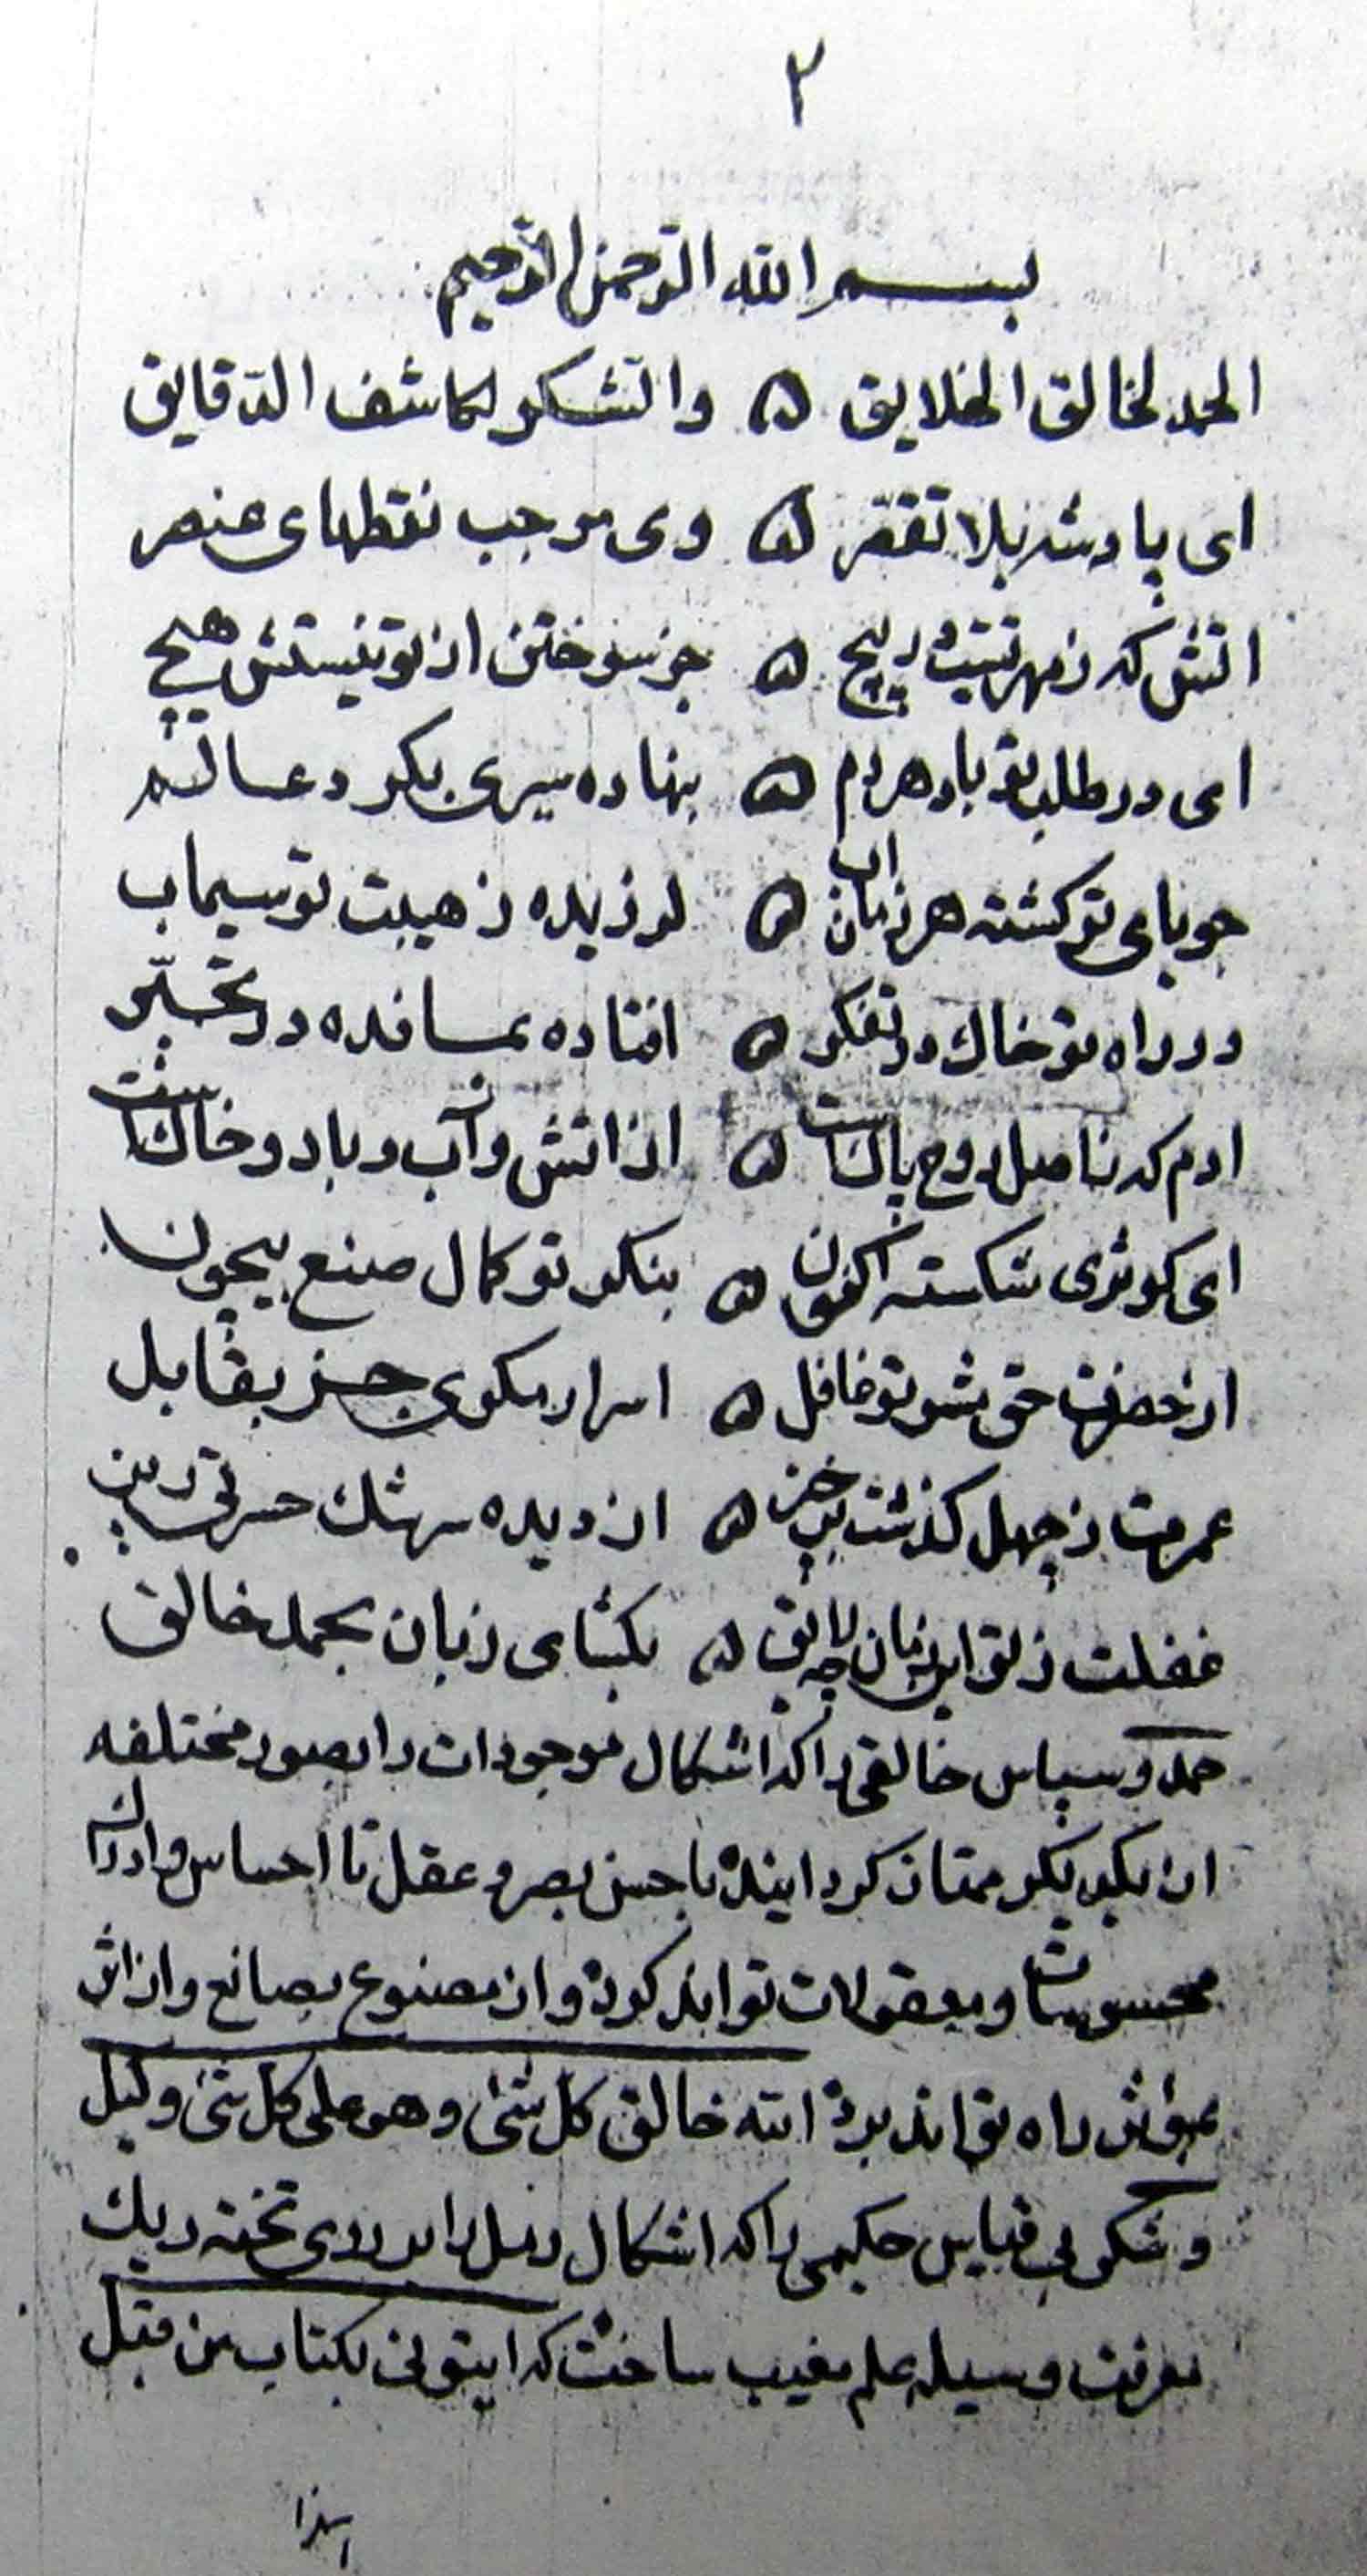 ۲
بسم الله الرحمن الرحیم
الحمد لخالق الخلایق ۵ والشکر لکاشف الدقایق
ای پادشه بلا تغیر ۵ وی موجب نقطهای عنصر
اتش که زمهر تست در پیچ ۵ جز سوختن از تو نیستش هیچ
ای در طلب تو باد هر دم ۵ بنهاده سیری بکرد عالم
جویای تو کشته هر زمان اب ۵ لرزیده ز هیبت تو سیماب
در راه تو خاك در تفکر ۵ افتاده در تحیر
ادم که روح پاك است ۵ از اتش و آب و باد و خاك است
ای کوثری شکسته اکنون ۵ بنکر تو کمال صنع بیچون
از حضرت حق مشو تو غافل ۵ اسرار مکوی جز بقابل
عمرت ز چهل کذشت برخیز ۵ از دیده سرشك حسرتی ریز
غفلت ز تو این زمان چه لایق ۵ بکشای زبان بحمد خالق
حمد و سپاس خالقی را که اشکال موجودات را بصور مختلفه
از یکدیکر ممتاز کردانیده با حسن بصر و عقل تا احساس و ادراك
محسوسات و معقولات تواند کرد و از مصنوع بصانع و از اثر
بمؤثر راه تواند برد الله خالق کل شئ وهو علی کل شئ وکیل
و شکر بی قیاس حکیمی را که اشکال رمل را بر روی تخته ریك
معرفت وسیله علم مغیب ساخت که ایتونی بکتاب من قبل
هذا